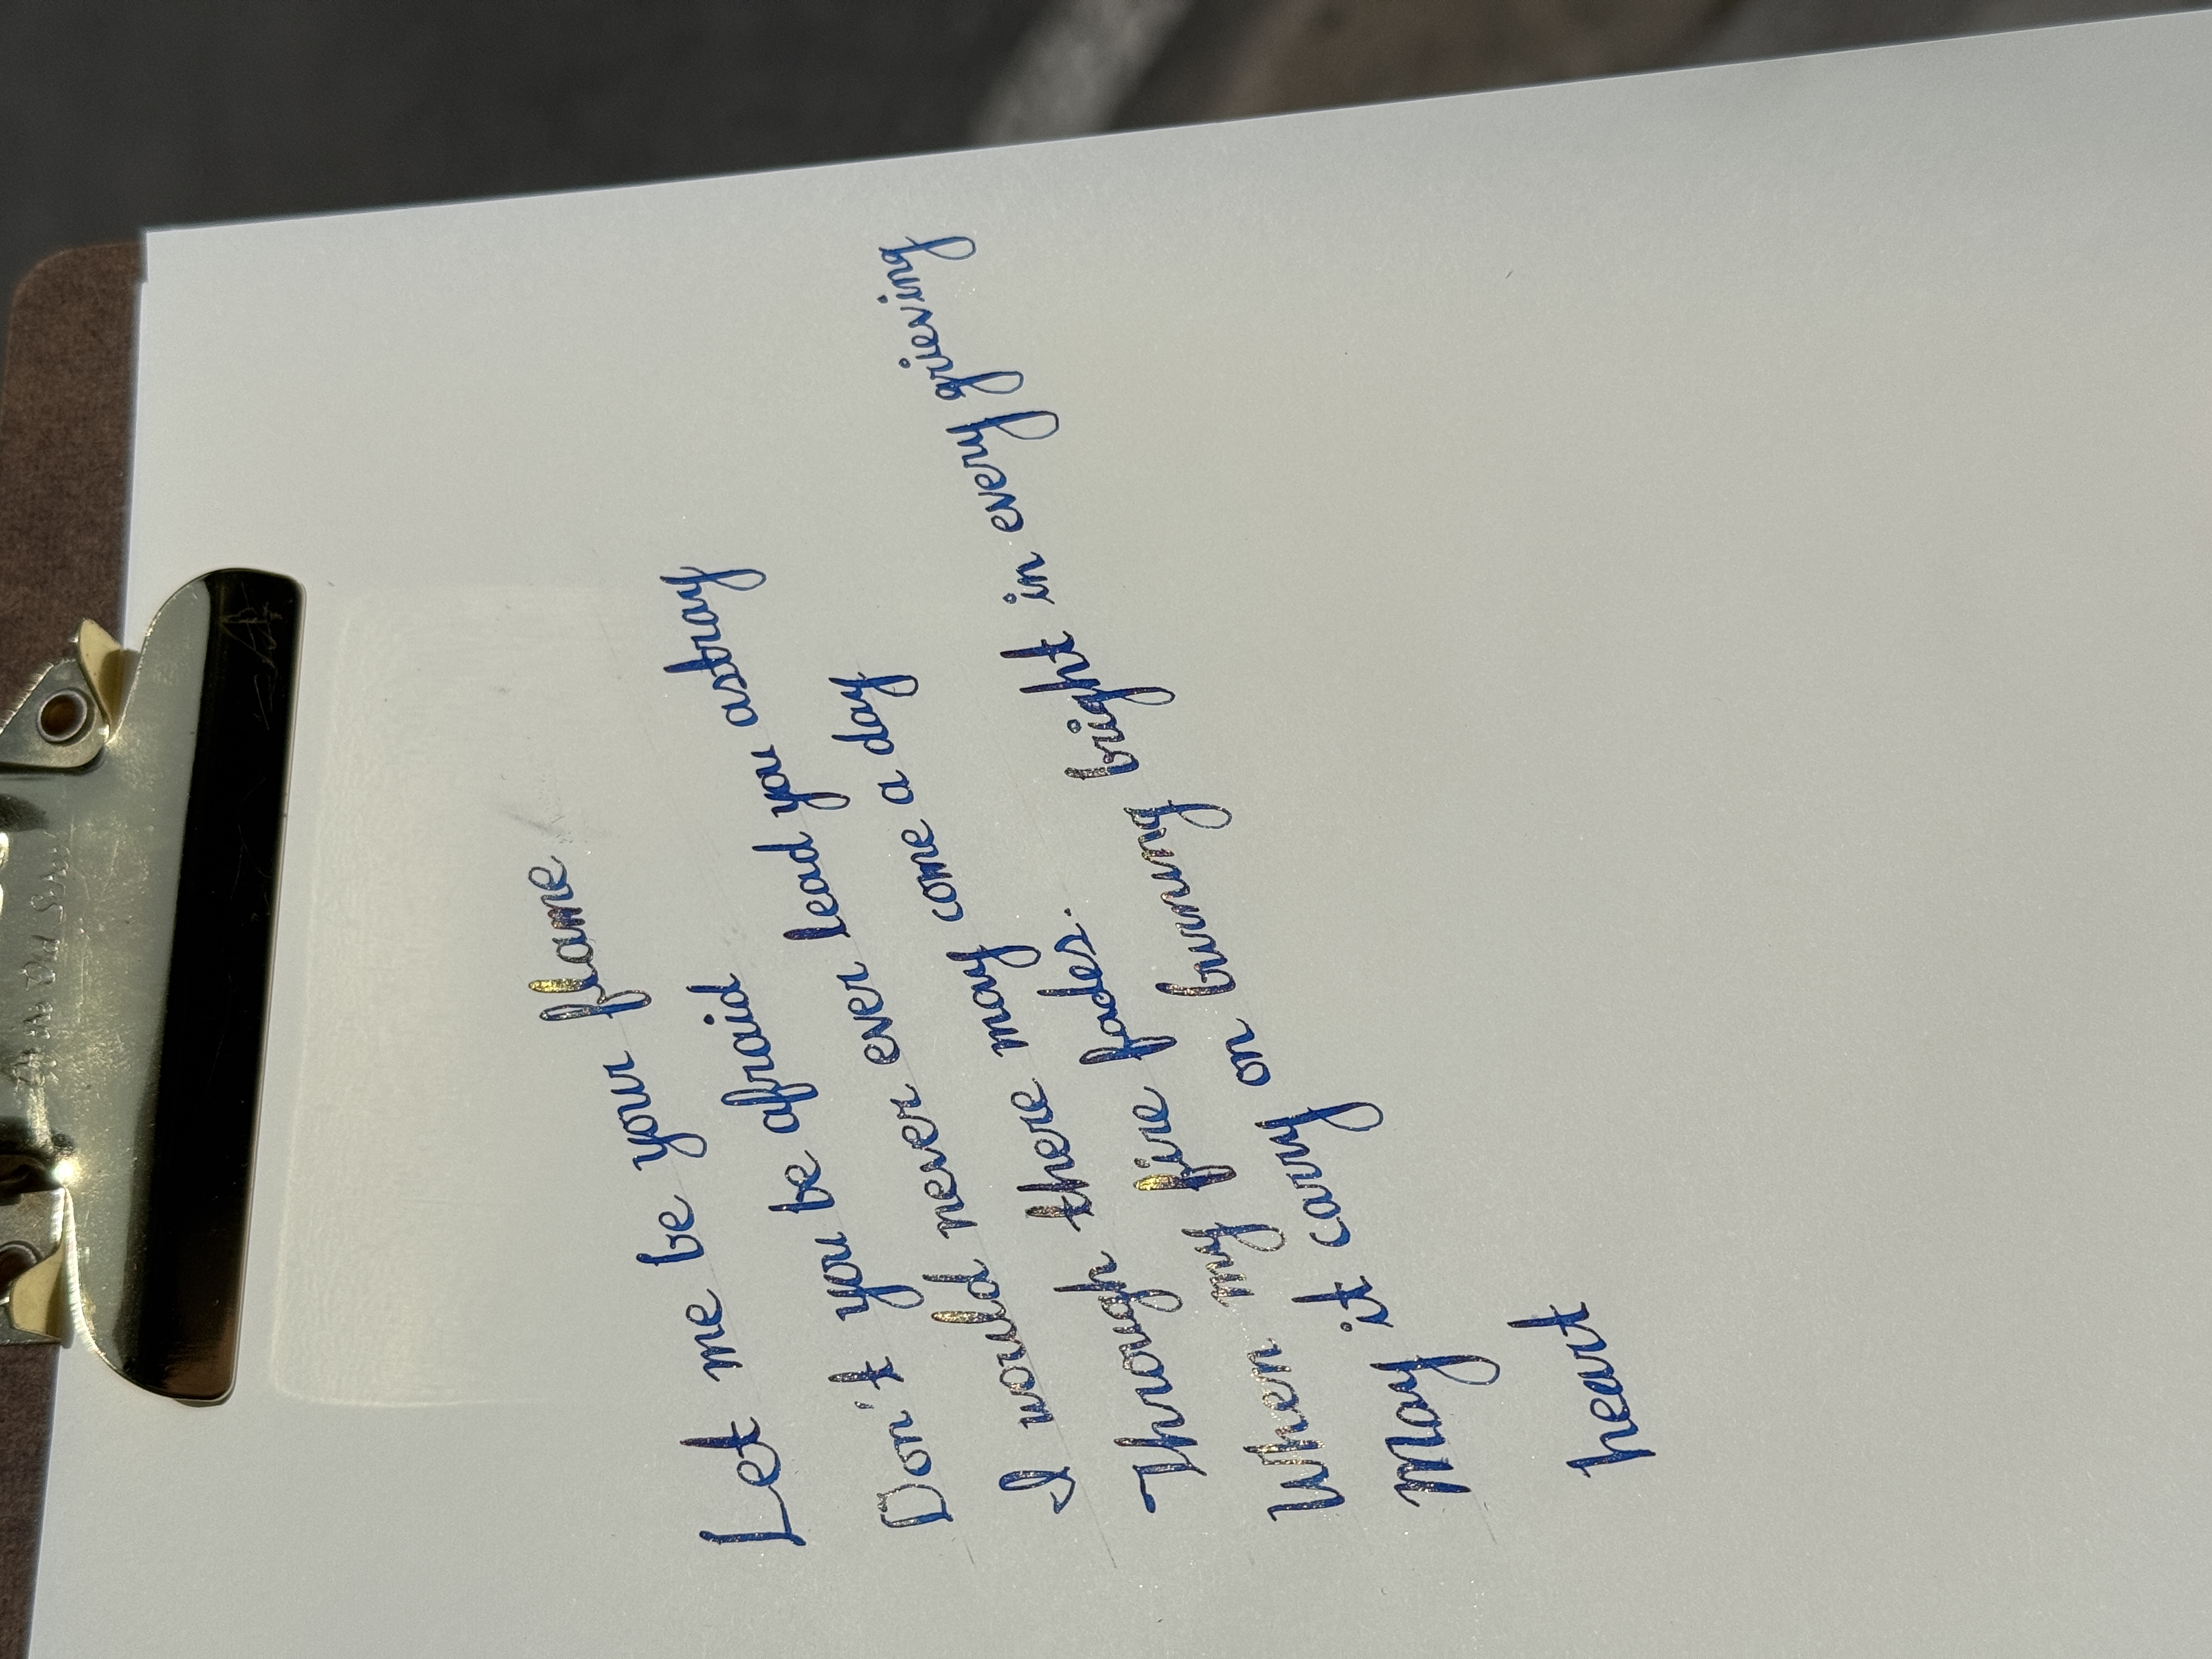 Let me be your flame
Don't you be afraid
I would never ever lead you astray
Through there may come a day
When my fire fades.
May it carry on burning bright in every grieving
heart